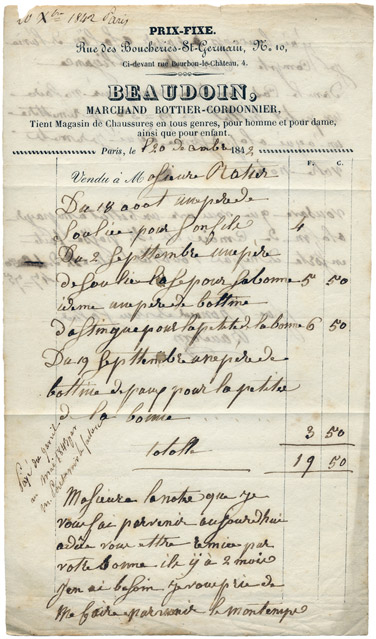 20 Xbre 1842 Paris
PRIX-FIXE.
Rue des Boucheries-St-Germain, N.º 10,
Ci-devant rue Bourbon-le-Château, 4.
BEAUDOIN,
MARCHAND BOTTIER-CORDONNIER,
Tient Magasin de Chaussures en tous genres, pour homme et pour dame,
ainsi que pour enfant.
Paris, le 20 decembre 1842.
Vendu à Mosieure Ratier F. C.
Du 18 aout une pere de
Soulier pour son fils 4
Du 2 Septtembre une pere
de Soulie lase pour sa bonne 5 50
idème une pere de bottine
dastingue pour la petite de la bonne 6 50
Du 19 Septtembre une pere de
bottine de paux pour la petites
de la bonne
3 50
totalle 19 50
Mosieure lanote que je
vous fai parvenir aujourdhui
a dêtre remise par
votre bonne il y à 2 mois
Jen ai besoin je vous prie de
me faire parvenir le montempe